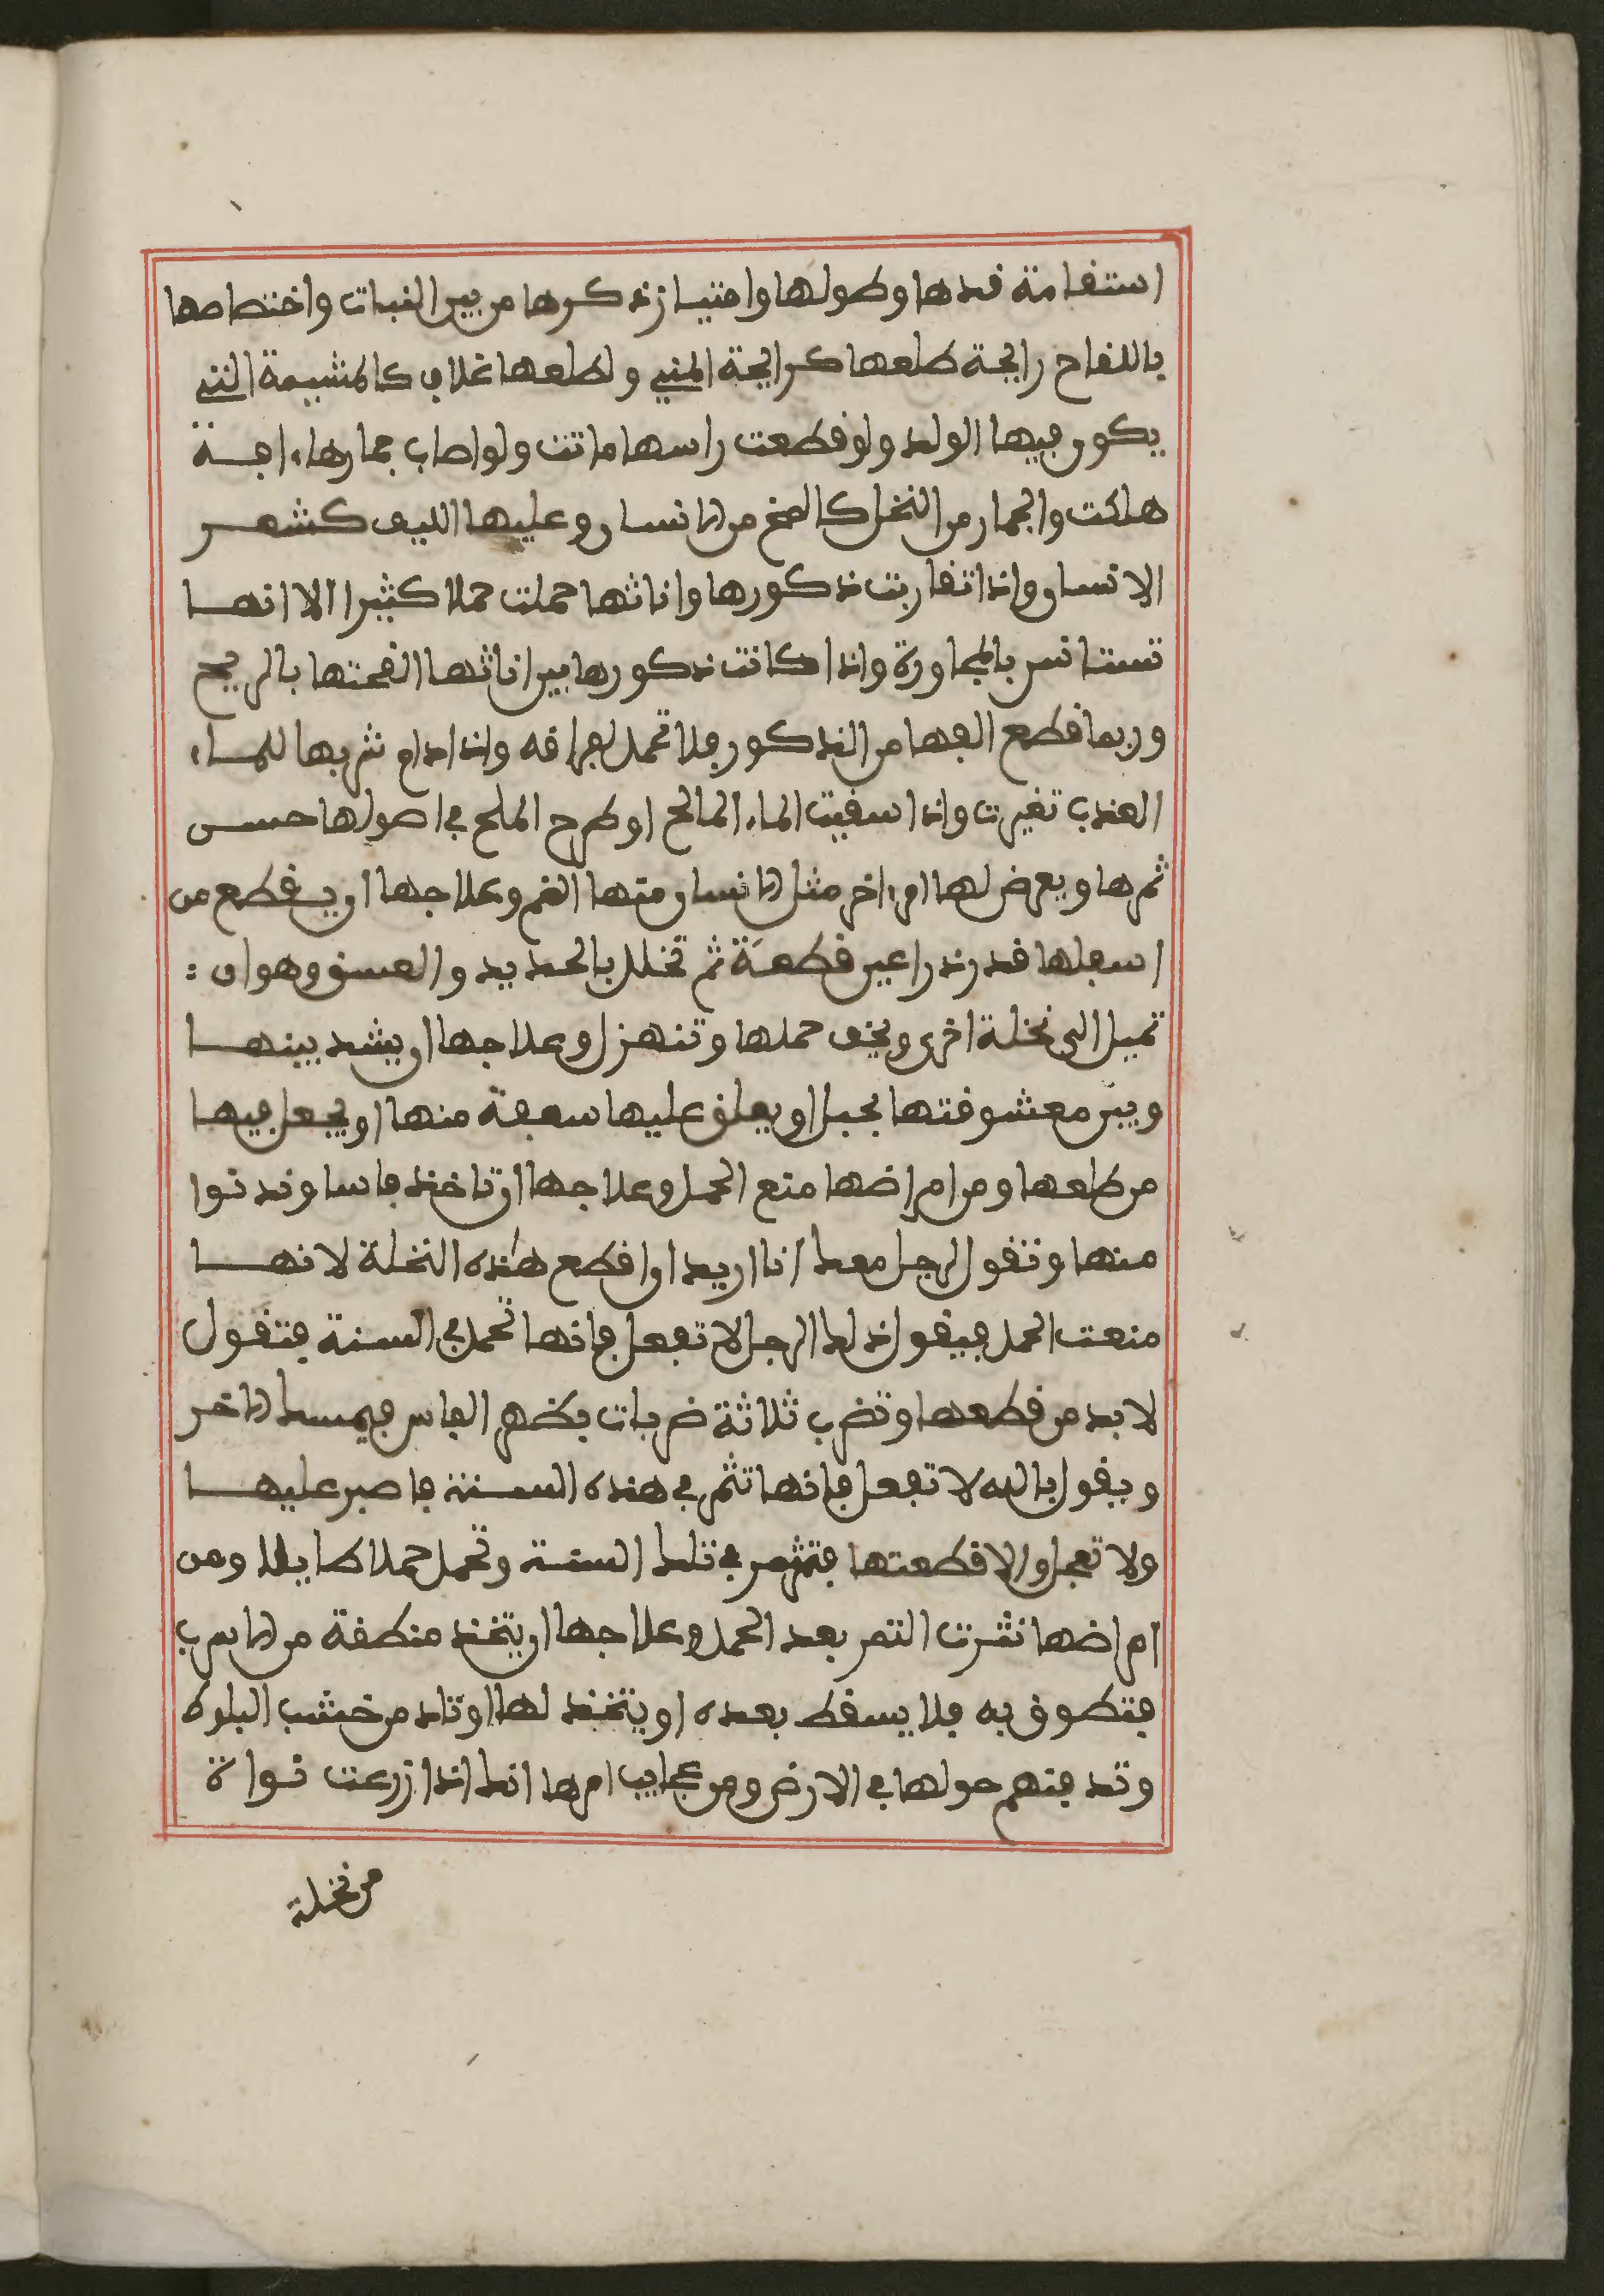 استقامة قدها وطولها وامتياز ذكرها من بين النبات واختصاصها
باللقاح رايحة طلعها كرايحة المني ولطلعها غلاف كالمشيمة التي
يكون فيها الولد ولو قطعت راسها ماتت ولو اصاب جمارها ءافة
هلكت والجمار من النخل كالمخ من الانسان وعليها الليف كشعر
الانسان واذا تقاربت ذكورها واناثها حملت حملا كثيرا الا انها
تستانس بالمجاورة واذا كانت ذكورها بين اناثها القحتها بالريح
وربما قطع الفها من الذكور فلا تحمل لفراقه واذا دام شربها للماء
العذب تغيرت واذا سقيت الماء المالح او طرح الملح في اصولها حسن
ثمرها ويعرض لها امراض مثل الانسان منها الغم وعلاجها ان يقطع من
اسفلها قدر ذراعين قطعة ثم تخلل بالحديد والعشق وهو ان :
تميل الى نخلة اخرى ويخف حملها وتنهزل وعلاجها ان يشد بينها
وبين معشوقتها بحبل او يعلق عليها سعفة منها او يجعل فيها
من طلعها ومن امراضها منع الحمل وعلاجها ان تاخذ فاسا وتدنوا
منها وتقول لرجل معك انا اريد ان اقطع هذه النخلة لانها
منعت الحمل فيقول ذلك الرجل لا تفعل فانها تحمل في السنة فتقول
لا بد من قطعها وتضرب ثلاثة ضربات بظهر الفاس فيمسك الاخر
ويقول بالله لا تفعل فانها تثمر في هذه السنة فاصبر عليها
ولا تعجل والا قطعتها فتثمر في تلك السنة وتحمل حملا طايلا ومن
امراضها نثرت التمر بعد الحمل وعلاجها ان يتخذ منطقة من الاسرب
فتطوق به فلا يسقط بعده او يتخذ لها اوتاد من خشب البلوط
وتدفنهم حولها في الارض ومن عجايب امرها انك اذا زرعت نواة
من نخلة